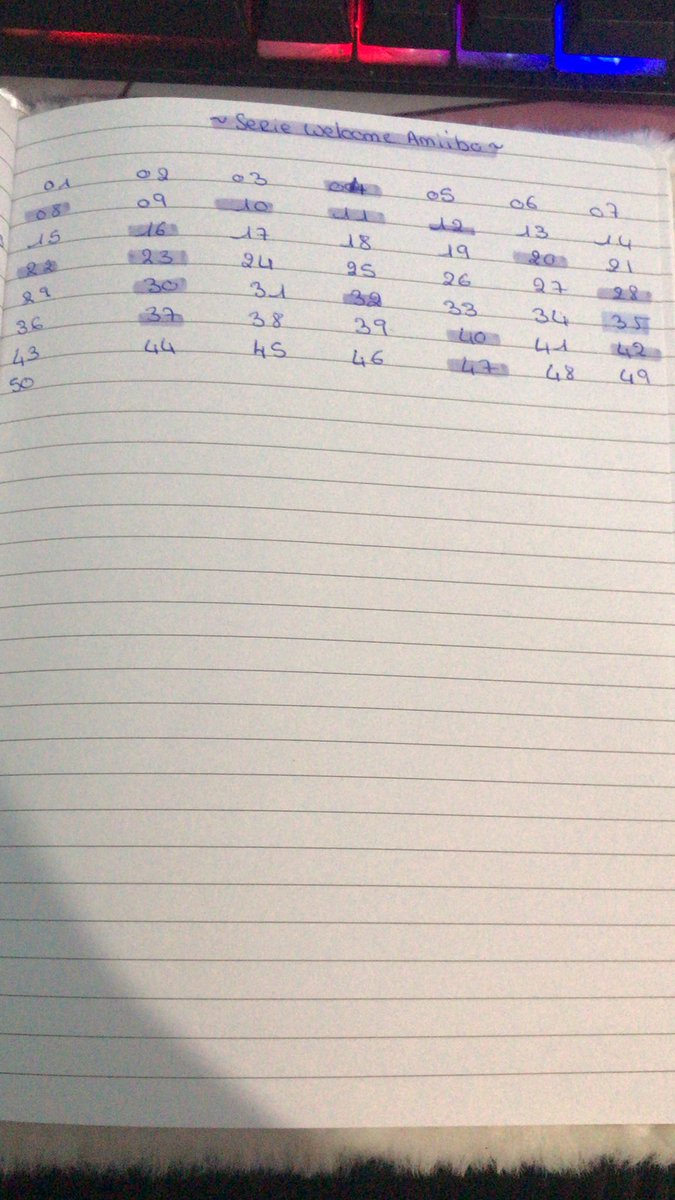 ~ Serie Welcome Amiibo ~
01 02 03 04 05 06 07
08 09 10 11 12 13 14
15 16 17 18 19 20 21
22 23 24 25 26 27 28
29 30 31 32 33 34 35
36 37 38 39 40 41 42
43 44 45 46 47 48 49
50